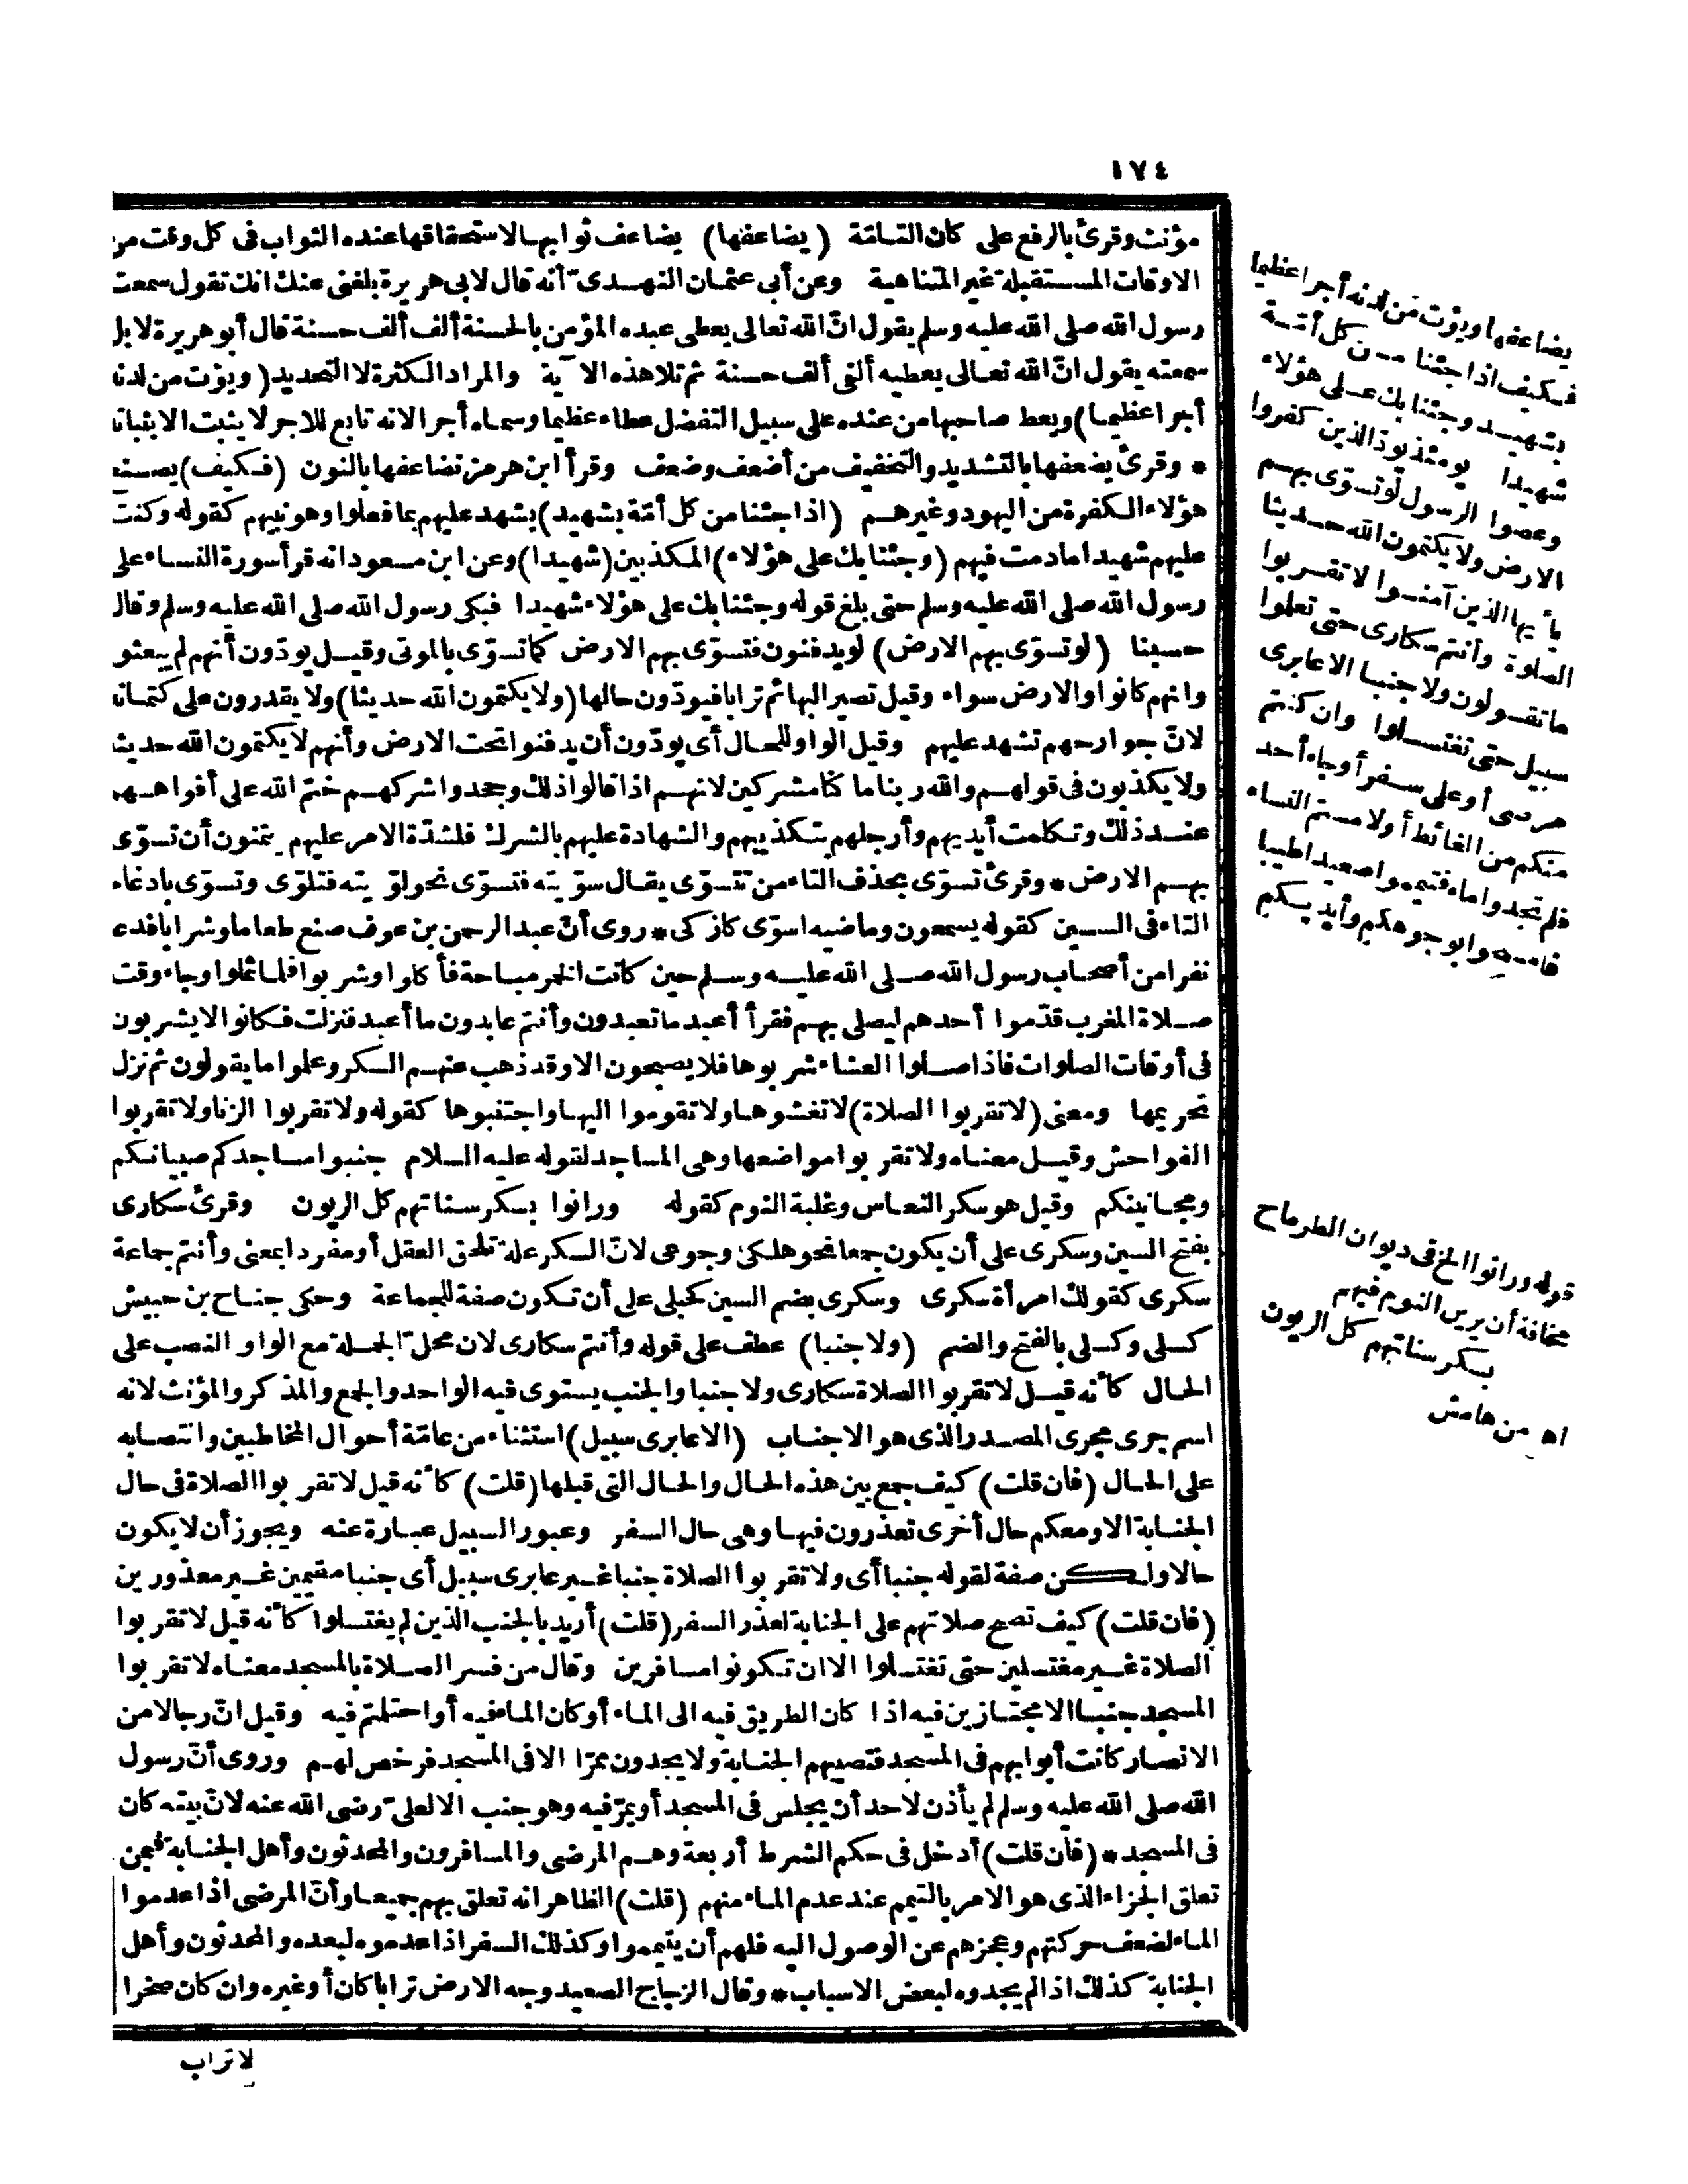 ١٧٤
مؤنث وقرئ بالرفع على كان التامّة (يضاعفها) يضاعف ثوابها لاستحقاقها عنده الثواب فى كل وقت من
الاوقات المستقبلة غير المتناهية وعن أبى عثمان النهدىّ أنه قال لابى هريرة بلغنى عنك انك تقول سمعت
رسول الله صلى الله عليه وسلم يقول انّ الله تعالى يعطى عبده المؤمن بالحسنة ألف ألف حسنة قال أبو هريرة لا بل
سمعته يقول انّ الله تعالى يعطيه ألفى ألف حسنة ثم تلا هذه الآية والمراد الكثرة لا التحديد (ويؤت من لدنه
أجرا عظيما) ويعط صاحبها من عنده على سبيل التفضل عطاء عظيما وسماه أجرا لانه تابع للاجر لا يثبت الا بثباته
* وقرئ يضعفها بالتشديد والتخفيف من أضعف وضعف وقرأ ابن هرمز نضاعفها بالنون (فكيف) يصنع
هؤلاء الكفرة من اليهود وغيرهم (اذا جئنا من كل أمّة بشهيد) يشهد عليهم بما فعلوا وهو نبيهم كقوله وكنت
عليهم شهيدا ما دمت فيهم (وجئنا بك على هؤلاء) المكذبين (شهيدا) وعن ابن مسعود انه قرأ سورة النساء على
رسول الله صلى الله عليه وسلم حتى بلغ قوله وجئنا بك على هؤلاء شهيدا فبكى رسول الله صلى الله عليه وسلم وقال
حسبنا (لو تسوّى بهم الارض) لو يدفنون فتسوّى بهم الارض كما تسوّى بالموتى وقيل يودّون أنهم لم يبعثو
وانهم كانوا والارض سواء وقيل تصير البهائم ترابا فيودّون حالها (ولا يكتمون الله حديثا) ولا يقدرون على كتمانه
لانّ جوارحهم تشهد عليهم وقيل الواو للحال أى يودّون أن يدفنوا تحت الارض وأنهم لا يكتمون الله حديثا
ولا يكذبون فى قولهم والله ربنا ما كنا مشركين لانهم اذا قالوا ذلك وجحدوا شركهم ختم الله على أفواههم
عند ذلك وتكلمت أيديهم وأرجلهم بتكذيبهم والشهادة عليهم بالشرك فلشدّة الامر عليهم يتمنون أن تسوّى
بهم الارض * وقرئ تسوّى بحذف التاء من تتسوّى يقال سوّيته فتسوّى نحو لوّيته فتلوّى وتسوّى بادغام
التاء فى السين كقوله يسمعون وماضيه اسوّى كازكى * روى أنّ عبد الرحمن بن عوف صنع طعاما وشرابا فدعا
نفرا من أصحاب رسول الله صلى الله عليه وسلم حين كانت الخمر مباحة فأكلوا وشربوا فلما ثملوا وجاء وقت
صلاة المغرب قدّموا أحدهم ليصلى بهم فقرأ أعبد ما تعبدون وأنتم عابدون ما أعبد فنزلت فكانوا لا يشربون
فى أوقات الصلوات فاذا صلوا العشاء شربوها فلا يصبحون الا وقد ذهب عنهم السكر وعلموا ما يقولون ثم نزل
تحريمها ومعنى (لا تقربوا الصلاة) لا تغشوها ولا تقوموا اليها واجتنبوها كقوله ولا تقربوا الزنا ولا تقربوا
الفواحش وقيل معناه ولا تقربوا مواضعها وهى المساجد لقوله عليه السلام جنبوا مساجدكم صبيانكم
ومجانينكم وقيل هو سكر النعاس وغلبة النوم كقوله ورانوا بسكر سناتهم كل الريون وقرئ سكارى
بفتح السين وسكرى على أن يكون جمعا نحو هلكى وجوعى لانّ السكر علة تلحق العقل أو مفردا بمعنى وأنتم جماعة
سكرى كقولك امرأة سكرى وسكرى بضم السين كحبلى على أن تكون صفة للجماعة وحكى جناح بن حبيش
كسلى وكسلى بالفتح والضم (ولا جنبا) عطف على قوله وأنتم سكارى لان محلّ الجملة مع الواو النصب على
الحال كأنه قيل لا تقربوا الصلاة سكارى ولا جنبا والجنب يستوى فيه الواحد والجمع والمذكر والمؤنث لانه
اسم جرى مجرى المصدر الذى هو الاجناب (الا عابرى سبيل) استثناء من عامّة أحوال المخاطبين وانتصابه
على الحال (فان قلت) كيف جمع بين هذه الحال والحال التى قبلها (قلت) كأنه قيل لا تقربوا الصلاة فى حال
الجنابة الا ومعكم حال أخرى تعذرون فيها وهى حال السفر وعبور السبيل عبارة عنه ويجوز أن لا يكون
حالا ولكن صفة لقوله جنبا أى ولا تقربوا الصلاة جنبا غير عابرى سبيل أى جنبا مقيمين غير معذورين
(فان قلت) كيف تصح صلاتهم على الجنابة لعذر السفر (قلت) أريد بالجنب الذين لم يغتسلوا كأنه قيل لا تقربوا
الصلاة غير مغتسلين حتى تغتسلوا الا ان تكونوا مسافرين وقال من فسر الصلاة بالمسجد معناه لا تقربوا
المسجد جنبا الا مجتازين فيه اذا كان الطريق فيه الى الماء أو كان الماء فيه أو احتلمتم فيه وقيل انّ رجالا من
الانصار كانت أبوابهم فى المسجد فتصيبهم الجنابة ولا يجدون ممرّا الا فى المسجد فرخص لهم وروى أنّ رسول
الله صلى الله عليه وسلم لم يأذن لاحد أن يجلس فى المسجد أو يمرّ فيه وهو جنب الا لعلىّ رضى الله عنه لانّ بيته كان
فى المسجد * (فان قلت) أدخل فى حكم الشرط أربعة وهم المرضى والمسافرون والمحدثون وأهل الجنابة فبمن
تعلق الجزاء الذى هو الامر بالتيمم عند عدم الماء منهم (قلت) الظاهر انه تعلق بهم جميعا وأنّ المرضى اذا عدموا
الماء لضعف حركتهم وعجزهم عن الوصول اليه فلهم أن يتيمموا وكذلك السفر اذا عدموه لبعده والمحدثون وأهل
الجنابة كذلك اذا لم يجدوه لبعض الاسباب * وقال الزجاج الصعيد وجه الارض ترابا كان أو غيره وان كان صخرا
لا تراب
يضاعفها ويؤت من لدنه أجرا عظيما
فكيف اذا جئنا من كل أمّة
بشهيد وجئنا بك على هؤلاء
شهيدا يومئذ يودّ الذين كفروا
وعصوا الرسول لو تسوّى بهم
الارض ولا يكتمون الله حديثا
يأيها الذين آمنوا لا تقربوا
الصلوة وأنتم سكارى حتى تعلموا
ما تقولون ولا جنبا الا عابرى
سبيل حتى تغتسلوا وان كنتم
مرضى أو على سفر أو جاء أحد
منكم من الغائط أو لامستم النساء
فلم تجدوا ماء فتيمموا صعيدا طيبا
فامسحوا بوجوهكم وأيديكم
قوله ورانوا الخ فى ديوان الطرماح
مخافة أن يرين النوم فيهم
بسكر سناتهم كل الريون
اه من هامش